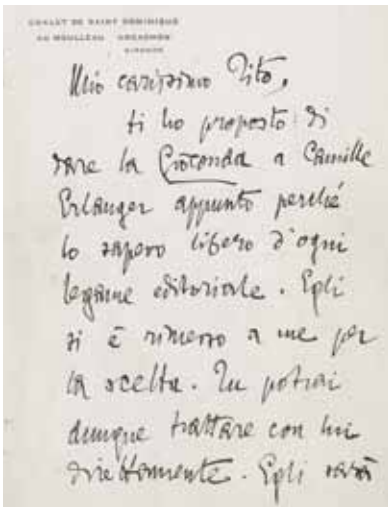 CHALET DE SAINT DOMINIQUE
AU MOULLEAU ARCACHON
GIRONDE
Mio carissimo Tito,
ti ho proposto di
dare la Gioconda a Camille
Erlanger appunto perché
lo sapevo libero d'ogni
legame editoriale. Egli
si è rimesso a me per
la scelta. Tu potrai
dunque trattare con lui
direttamente. Egli sarà